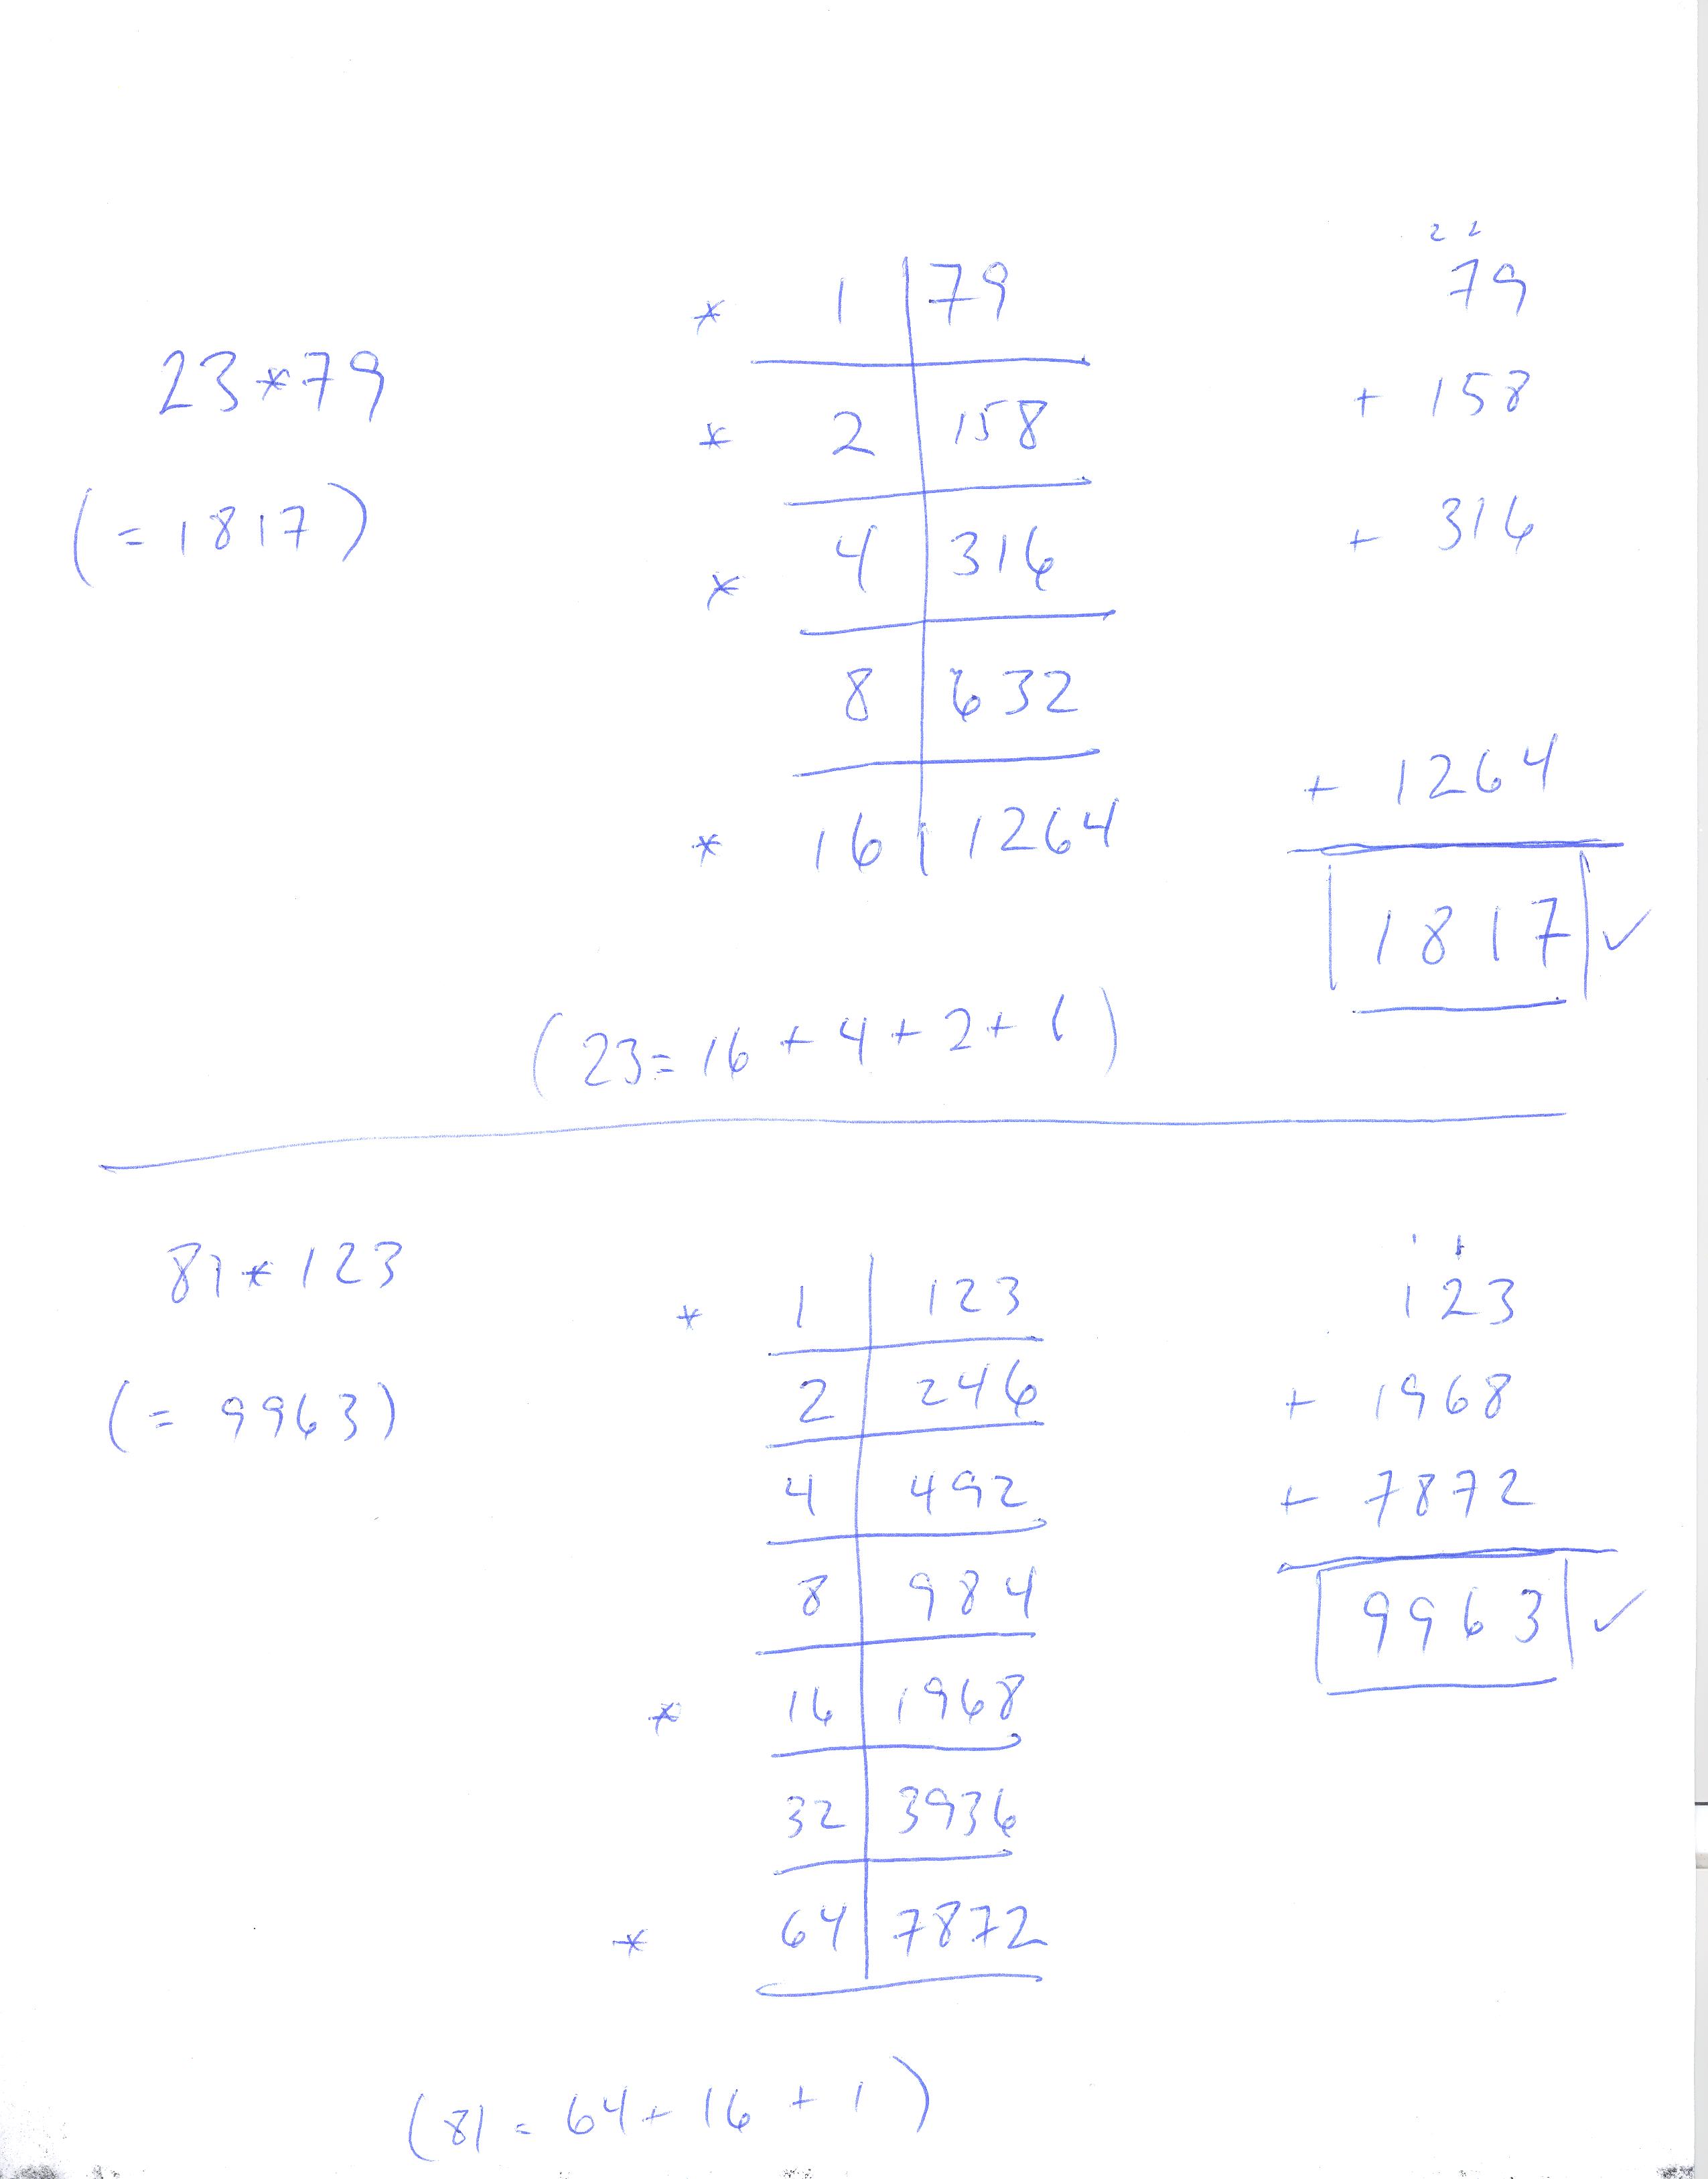 23*79
(=1817)
* 1 79
* 2 158
* 4 316
8 632
* 16 1264
2 2
79
+ 158
+ 316
+ 1264
1817 ✓
(23=16+4+2+1)
81*123
(=9963)
* 1 123
2 246
4 492
8 984
* 16 1968
32 3936
* 64 7872
1 1
123
+ 1968
+ 7872
9963 ✓
(81=64+16+1)